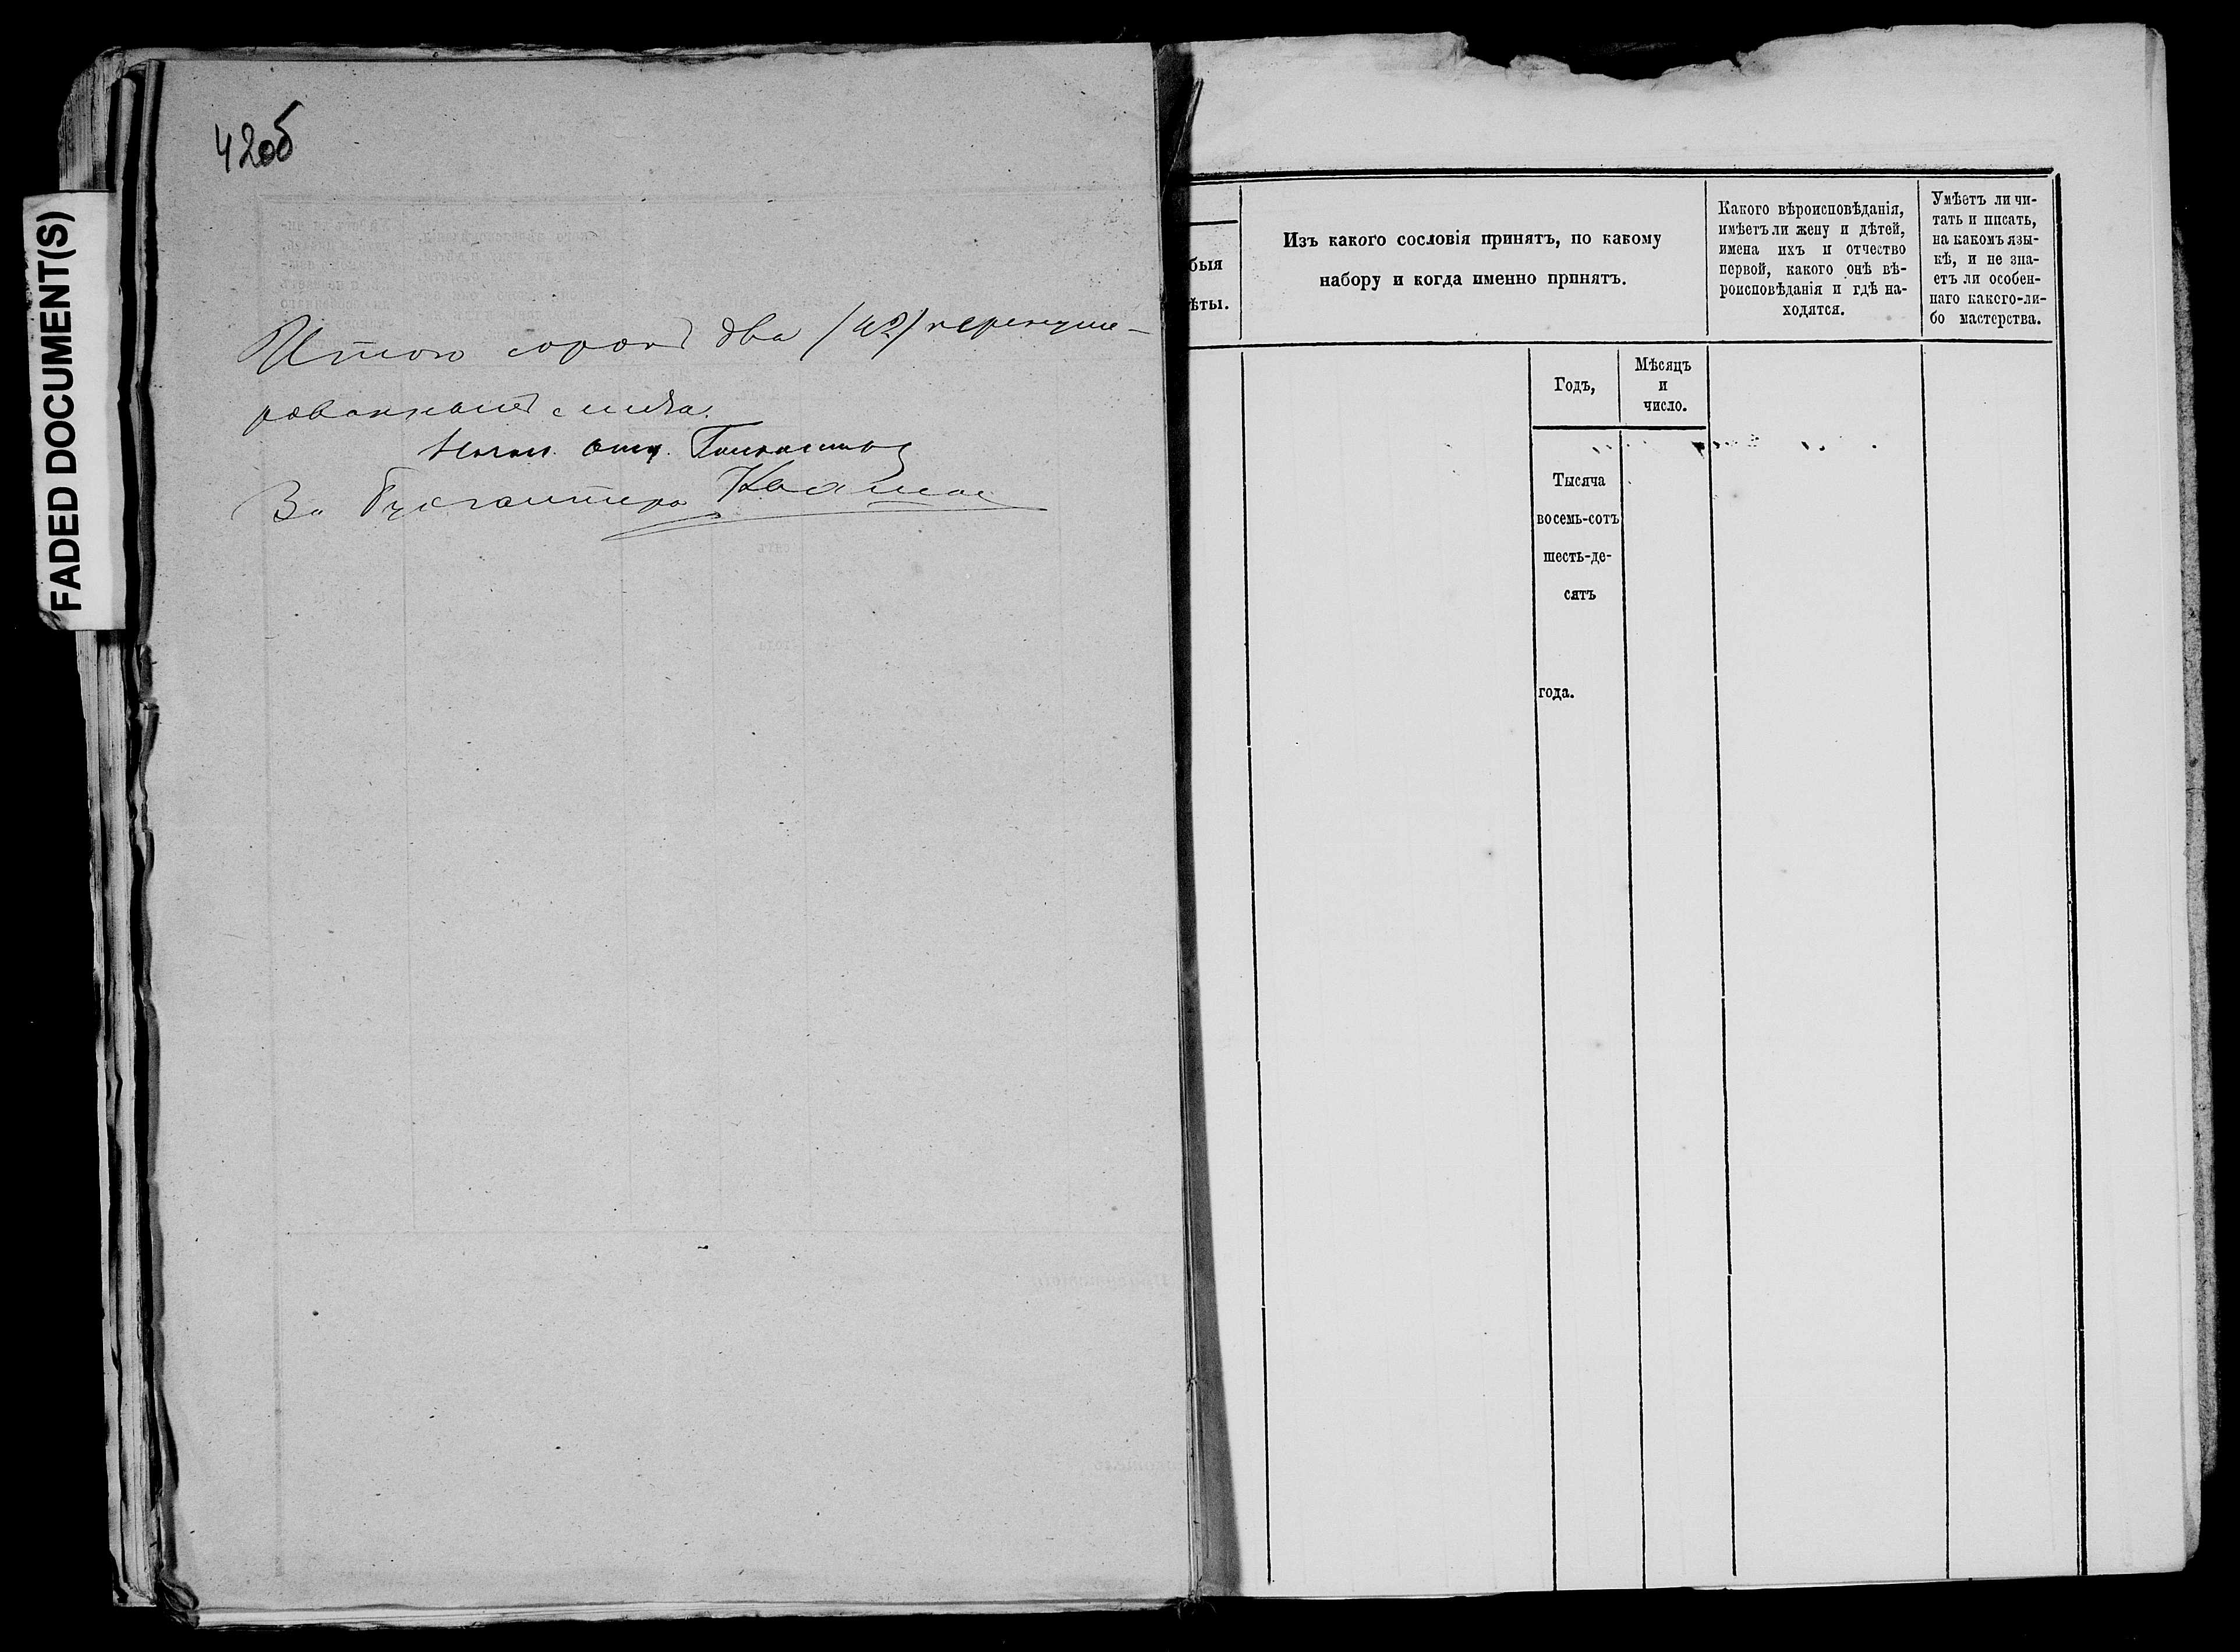 42об
FADED DOCUMENT(S)
Итого сорокъ два (42) перенуме-
рованныхъ листа.
Нач. отд.
За Бухгалтера
быя
ѣты.
Изъ какого сословія принятъ, по какому
набору и когда именно принятъ.
Какого вѣроисповѣданія,
имѣетъ ли жену и дѣтей,
имена ихъ и отчество
первой, какого онѣ вѣ-
роисповѣданія и гдѣ на-
ходятся.
Умѣетъ ли чи-
тать и писать,
на какомъ язы-
кѣ, и не зна-
етъ ли особен-
наго какого-ли-
бо мастерства.
Годъ,
Мѣсяцъ
и
число.
Тысяча
восемь-сотъ
шесть-де-
сятъ
года.